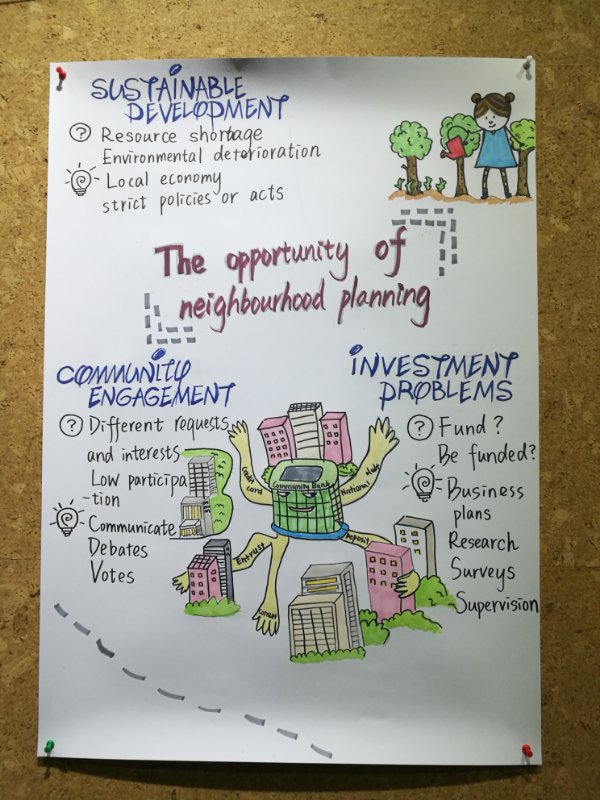 SUSTAINABLE
DEVELOPMENT
? Resource shortage
Environmental deterioration
Local economy
strict policies or acts
The opportunity of
neighbourhood planning
COMMUNITY
ENGAGEMENT
? Different requests
and interests
Low participa
-tion
Communicate
Debates
Votes
INVESTMENT
PROBLEMS
? Fund?
Be funded?
Business
plans
Research
Surveys
Supervision
Community Bank
Credit
card
National
Deposit
Entrust